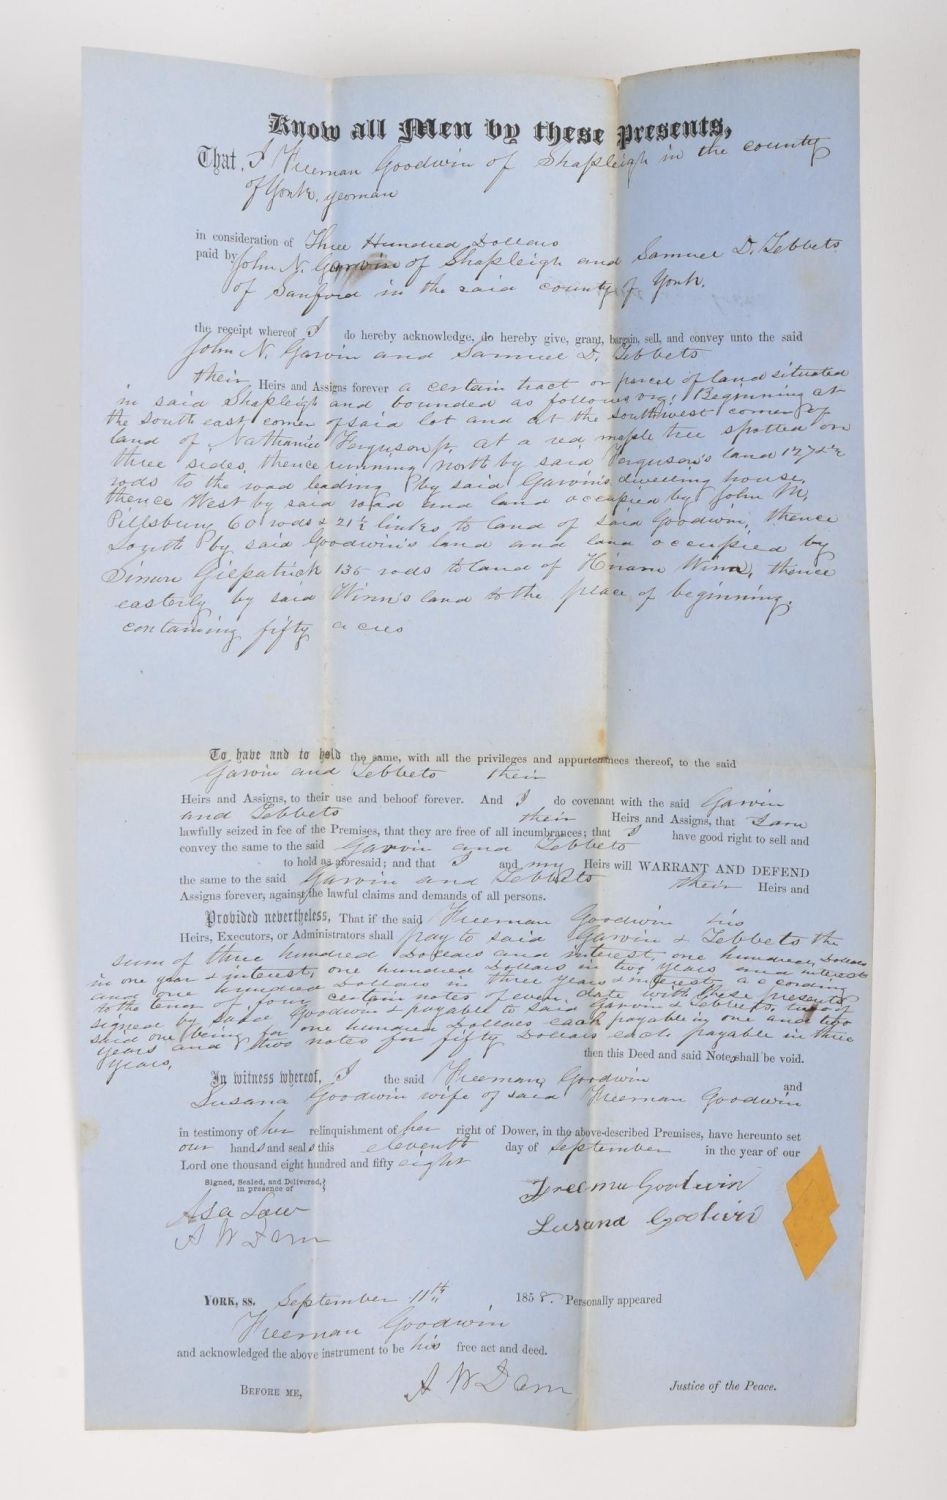 Know all Men by these presents,
That, I Freeman Goodwin of Shapleigh in the county
of York, yeoman
in consideration of Three Hundred Dollars
paid by John N. Garvin of Shapleigh and Samuel D. Tebbets
of Sanford in the said county of York.
the receipt whereof I do hereby acknowledge, do hereby give, grant, bargain, sell, and convey unto the said
John N. Garvin and Samuel D. Tebbets
their Heirs and Assigns forever a certain tract or parcel of land situated
in said Shapleigh and bounded as follows viz; Beginning at
the south east corner of said lot and at the southwest corner of
land of Nathaniel Ferguson Jr. at a red maple tree spotted on
three sides, thence running north by said Ferguson's land
rods to the road leading by said Garvin's dwelling house,
thence West by said road and land occupied by John M.
Pillsbury 60 rods & 21½ links to land of said Goodwin, thence
South by said Goodwin's land and land occupied by
Simon Gilpatrick 135 rods to land of Hiram Winn, thence
easterly by said Winn's land to the place of beginning.
containing fifty acres
To have and to hold the same, with all the privileges and appurtenances thereof, to the said
Garvin and Tebbets their
Heirs and Assigns, to their use and behoof forever. And I do covenant with the said Garvin
and Tebbets their Heirs and Assigns, that I am
lawfully seized in fee of the Premises, that they are free of all incumbrances; that I have good right to sell and
convey the same to the said Garvin and Tebbets
to hold as aforesaid; and that I and my Heirs will WARRANT AND DEFEND
the same to the said Garvin and Tebbets their Heirs and
Assigns forever, against the lawful claims and demands of all persons.
Provided nevertheless, That if the said Freeman Goodwin his
Heirs, Executors, or Administrators shall pay to said Garvin & Tebbets the
sum of three hundred Dollars and interest, one hundred Dollars
in one year & interest, one hundred Dollars in two years and interest
and one hundred Dollars in three years & interest, according
to the tenor of four certain notes of even date with these presents
signed by said Goodwin & payable to said Garvin & Tebbets, two of
said one being for one hundred Dollars each payable in one and two
years and two notes for fifty Dollars each payable in three
years, then this Deed and said Notes shall be void.
In witness whereof, I the said Freeman Goodwin and
Susana Goodwin wife of said Freeman Goodwin
in testimony of her relinquishment of her right of Dower, in the above-described Premises, have hereunto set
our hands and seals this eleventh day of September in the year of our
Lord one thousand eight hundred and fifty eight
Signed, Sealed, and Delivered,
in presence of
Asa Law
A W Dam
Freeman Goodwin
Susana Goodwin
YORK, ss. September 11th 1858. Personally appeared
Freeman Goodwin
and acknowledged the above instrument to be his free act and deed.
BEFORE ME, A W Dam Justice of the Peace.